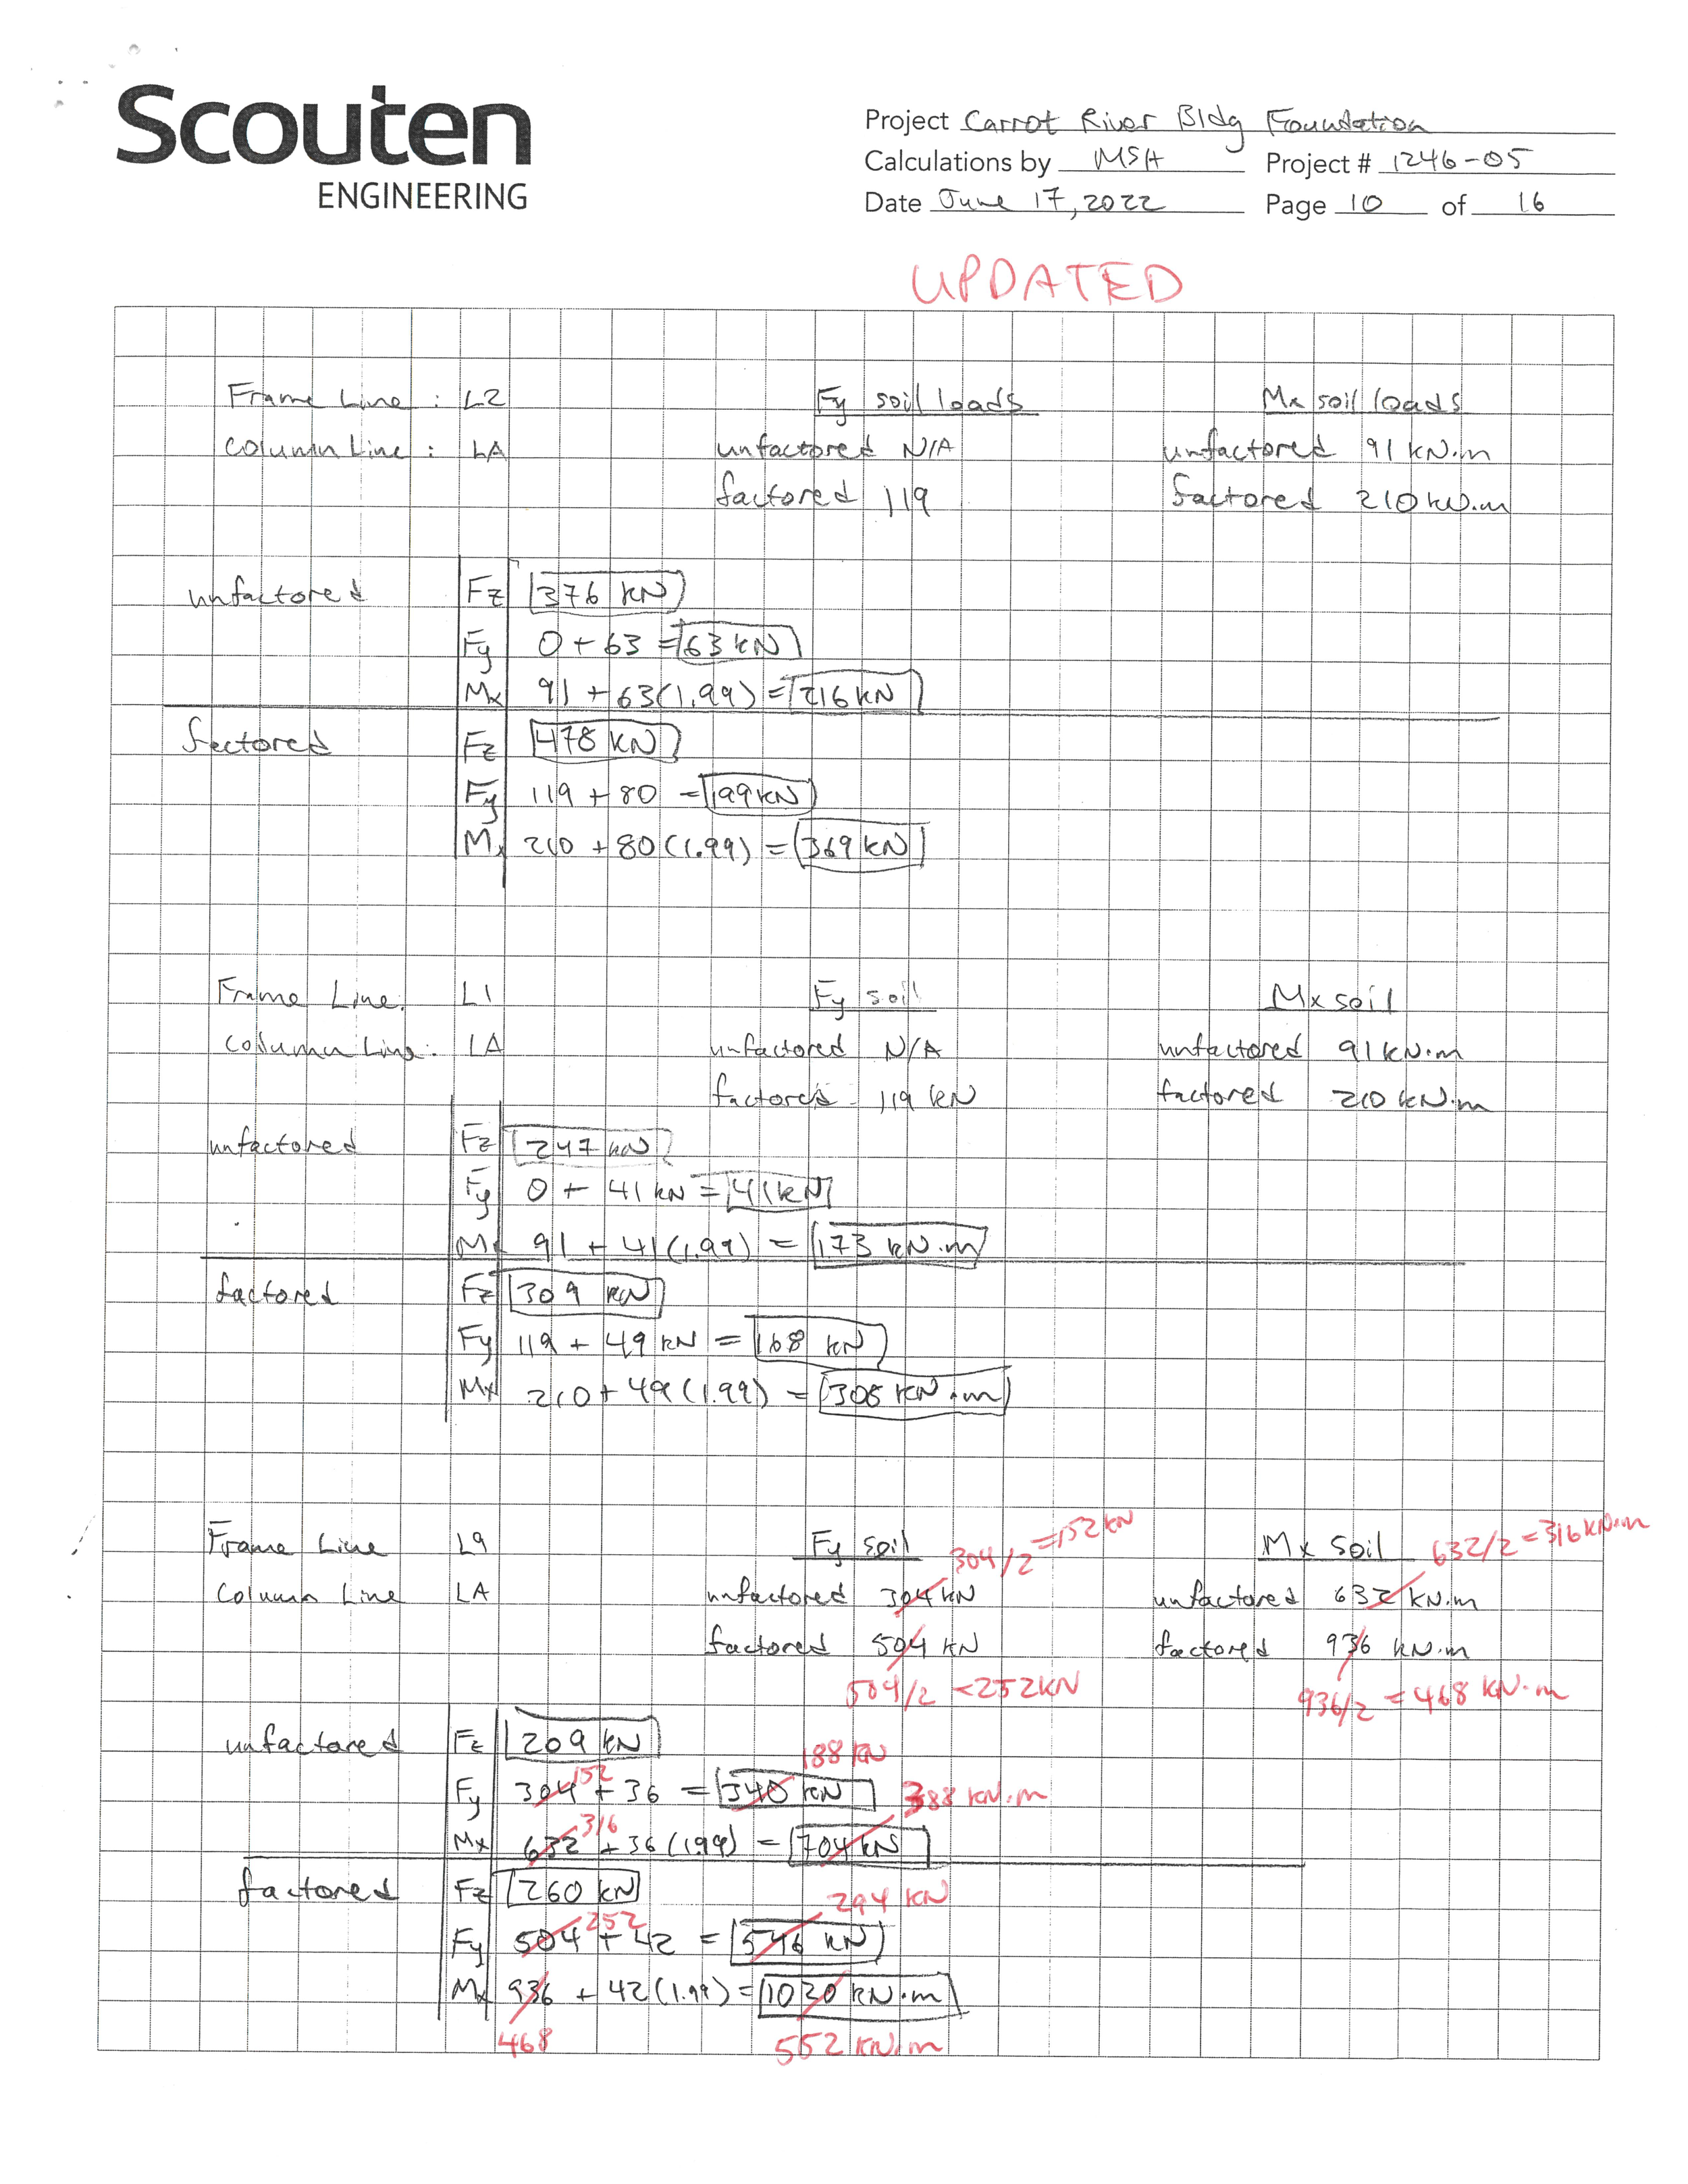 Scouten
ENGINEERING
Project Carrot River Bldg Foundation
Calculations by MSH Project # 1246-05
Date June 17, 2022 Page 10 of 16
UPDATED
Frame Line : L2 Fy soil loads Mx soil loads
Column Line : LA unfactored N/A unfactored 91 kN.m
factored 119 factored 210 kN.m
unfactored Fz 376 kN
Fy 0 + 63 = 63 kN
Mx 91 + 63(1.99) = 216 kN
factored Fz 478 kN
Fy 119 + 80 = 199 kN
Mx 210 + 80(1.99) = 369 kN
Frame Line: L1 Fy soil Mx soil
Column Line: LA unfactored N/A unfactored 91 kN.m
factored 119 kN factored 210 kN.m
unfactored Fz 247 kN
Fy 0 + 41 kN = 41 kN
Mx 91 + 41(1.99) = 173 kN.m
factored Fz 309 kN
Fy 119 + 49 kN = 168 kN
Mx 210 + 49(1.99) = 308 kN.m
Frame Line L9 Fy soil 304/2 = 152 kN Mx soil 632/2 = 316 kN.m
Column Line LA unfactored 304 kN unfactored 632 kN.m
factored 504 kN factored 936 kN.m
504/2 = 252 kN 936/2 = 468 kN.m
unfactored Fz 209 kN
188 kN
Fy 304 152 + 36 = 340 kN 388 kN.m
Mx 632 316 + 36(1.99) = 704 kN
factored Fz 260 kN
294 kN
Fy 504 252 + 42 = 546 kN
Mx 936 + 42(1.99) = 1020 kN.m
468 552 kN.m